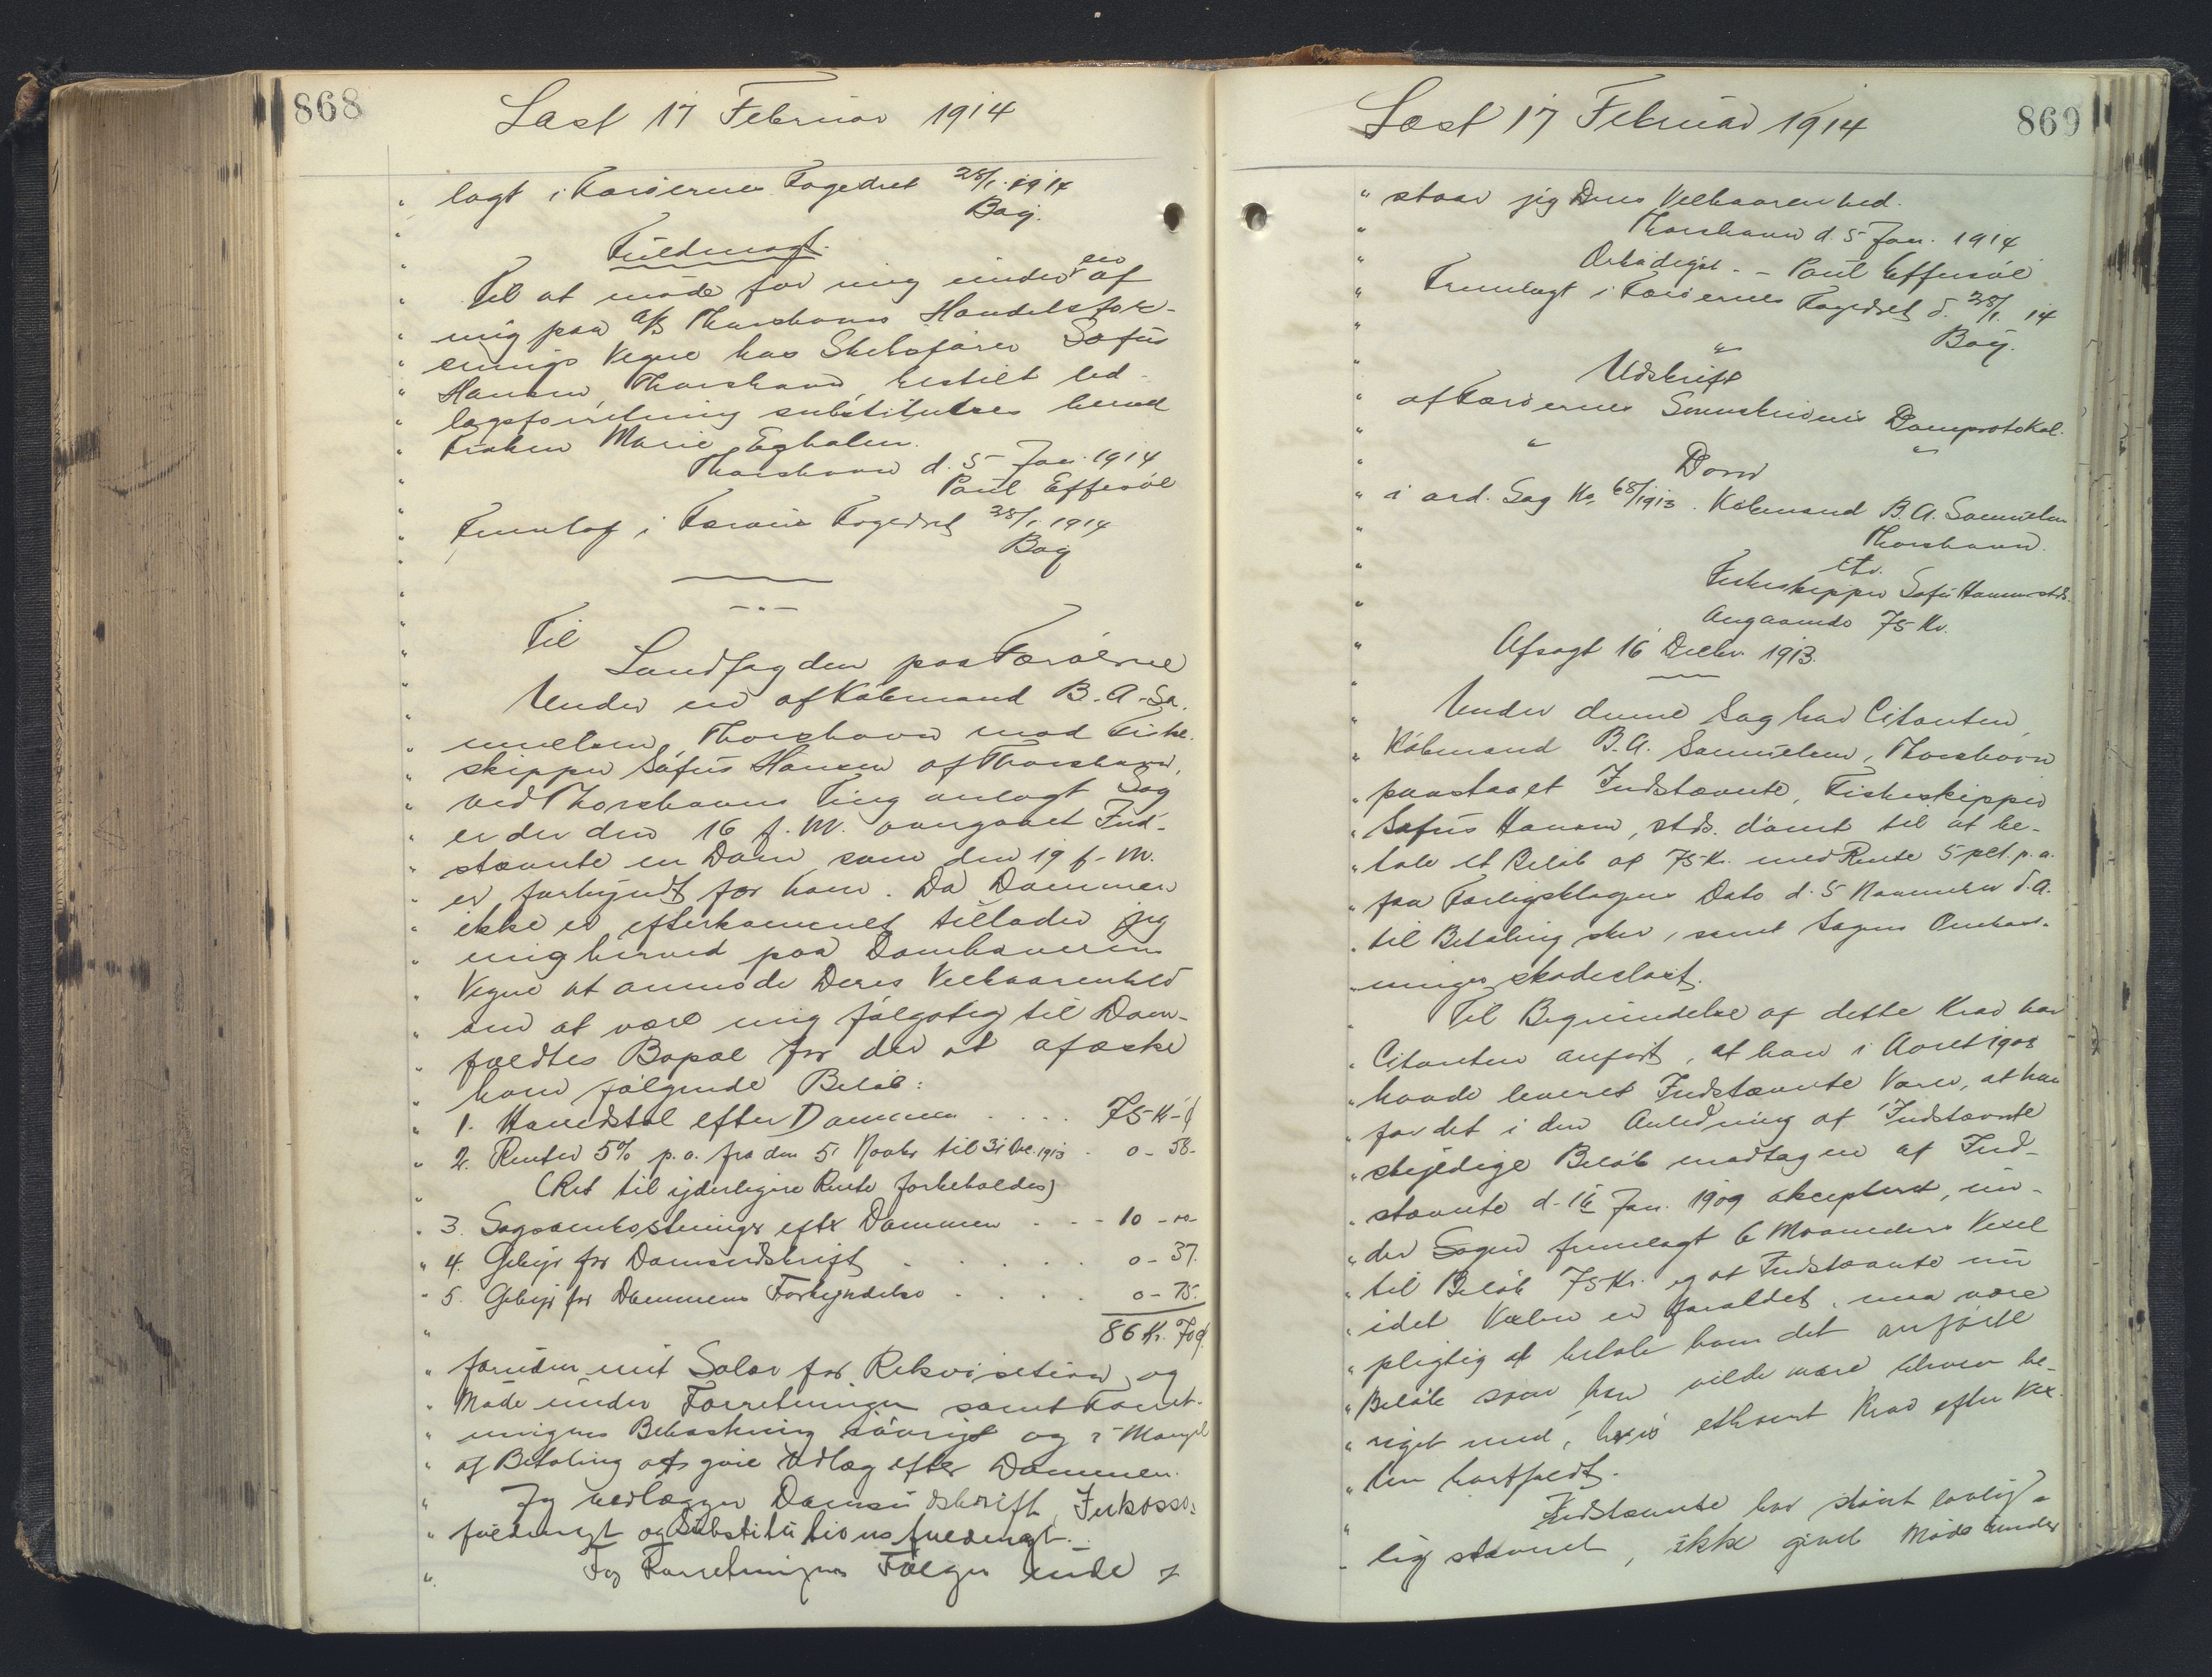 868
Læst 17 Februar 1914
" lagt i Færøernes Fogedret 28/1. 1914
" Bay.
" Fuldmagt.
" Til at møde for mig under en af
" mig paa A/S Thorshavns Handelsfor-
" enings Vegne hos Skibsfører Sofus
" Hansen, Thorshavn, bestilt Ud-
" lægsforretning substitueres herved
" Frøken Marie Egholm.
" Thorshavn d. 5 Jan. 1914
" Poul Effersøe
" Fremlagt i Færøernes Fogedret 28/1. 1914
" Bay
" Til
" Landfogden paa Færøerne
" Under en af Købmand B. A. Sa-
" muelsen, Thorshavn mod Fiske-
" skipper Sofus Hansen af Thorshavn,
" ved Thorshavns Ting anlagt Sag
" er der den 16 f. M. overgaaet Ind-
" stævnte en Dom som den 19 f. M.
" er forkyndt for ham. Da Dommen
" ikke er efterkommet tillader jeg
" mig herved paa Domhaverens
" Vegne at anmode Deres Velbaarenhed
" om at være mig følgagtig til Dom-
" fældtes Bopæl for der at afæske
" ham følgende Beløb:
" 1. Hovedstol efter Dommen .... 75 Kr - Ø
" 2. Renter 5% p. a. fra den 5' Novbr til 31 Dec. 1913 . 0 - 58 -
" (Ret til yderligere Rente forbeholdes)
" 3. Sagsomkostninger efter Dommen . . - 10 - 00 -
" 4. Gebyr for Domsudskrift . . . . . 0 - 37.
" 5. Gebyr for Dommens Forkyndelse . . . . 0 - 75.
" 86 Kr. 70 Ø.
" foruden mit Salær for Rekvisition og
" Møde under Forretningen samt Forret-
" ningens Bekostning iøvrigt og i Mangel
" af Betaling at gøre Udlæg efter Dommen.
" Jeg vedlægger Domsudskrift, Inkasso-
" fuldmagt og Substitutionsfuldmagt.
" For Forretningens Følger inde
869
Læst 17 Februar 1914
" staar jeg Deres Velbaarenhed.
" Thorshavn d. 5 Jan. 1914
" Ærbødigst. - Poul Effersøe
" Fremlagt i Færøernes Fogedret d. 28/1. 14
" Bay.
" Udskrift
" af Færøernes Sorenskriveris Domprotokol.
" Dom
" i ord. Sag No. 68/1913. Købmand B. A. Samuelsen
" Thorshavn.
" ctr.
" Fiskeskipper Sofus Hansen stds.
" Angaaende 75 Kr.
" Afsagt 16 Decbr. 1913.
" Under denne Sag har Citanten,
" Købmand B. A. Samuelsen, Thorshavn
" paastaaet Indstævnte, Fiskeskipper
" Sofus Hansen, stds. dømt til at be-
" tale et Beløb af 75 Kr. med Rente 5 pct. p. a.
" fra Forligsklagens Dato d. 5 November d. A.
" til Betaling sker, samt Sagens Omkost-
" ninger skadesløst.
" Til Begrundelse af dette Krav har
" Citanten anført, at han i Aaret 1908
" havde leveret Indstævnte Varer, at han
" for det i den Anledning af Indstævnte
" skyldige Beløb modtog en af Ind-
" stævnte d. 16 Jan. 1909 akcepteret, un-
" der Sagen fremlagt 6 Maaneders Vexel
" til Beløb 75 Kr. og at Indstævnte nu
" idet Vexlen er forældet, maa være
" pligtig at betale ham det anførte
" Beløb som han vilde være bleven be-
" riget med, hvis ethvert Krav efter Vex-
" len bortfaldt.
" Indstævnte har skønt lovlig
" lig stævnet, ikke givet Møde under